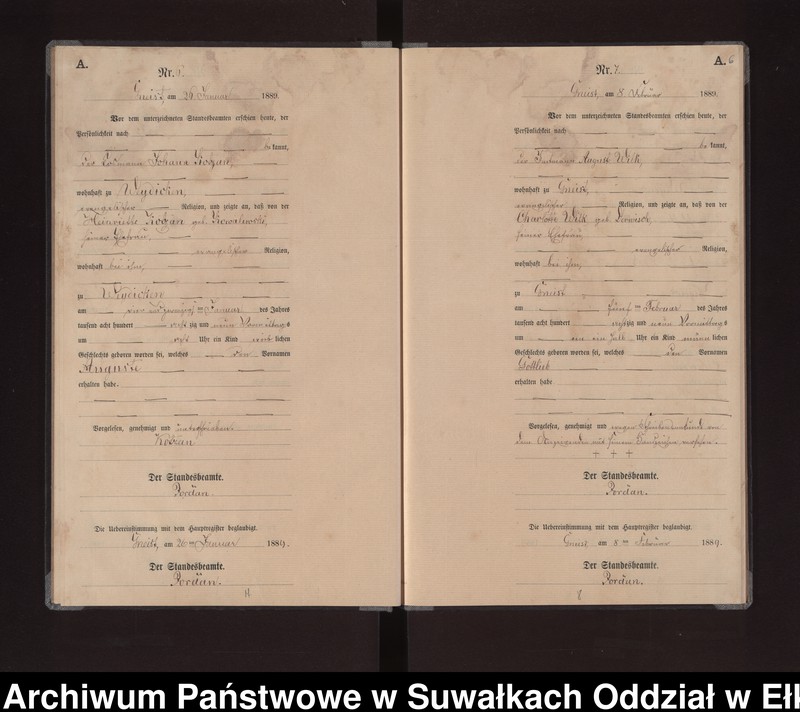 A.
Nr. 6.
Gneist, am 26 Januar 1889.
Vor dem unterzeichneten Standesbeamten erschien heute, der
Persönlichkeit nach
bekannt,
der Johann Kotzan,
wohnhaft zu Weydicken,
evangelischer Religion, und zeigte an, daß von der
Henriette Kotzan geb. Kowalewski,
seiner Ehefrau,
evangelischer Religion,
wohnhaft bei ihm,
zu Weydicken
am vier und zwanzigsten Januar des Jahres
tausend acht hundert achtzig und neun Vormittags
um acht Uhr ein Kind weiblichen
Geschlechts geboren worden sei, welches den Vornamen
Auguste
erhalten habe.
Vorgelesen, genehmigt und unterschrieben.
Kotzan
Der Standesbeamte.
Pordan.
Die Uebereinstimmung mit dem Hauptregister beglaubigt.
Gneist, am 26ten Januar 1889.
Der Standesbeamte.
Pordan.
A. 6
Nr. 7.
Gneist, am 8. Februar 1889.
Vor dem unterzeichneten Standesbeamten erschien heute, der
Persönlichkeit nach
bekannt,
der August Wilk,
wohnhaft zu Gneist,
evangelischer Religion, und zeigte an, daß von der
Charlotte Wilk geb.
seiner Ehefrau,
evangelischer Religion,
wohnhaft bei ihm,
zu Gneist
am fünften Februar des Jahres
tausend acht hundert achtzig und neun Vormittags
um ein halb Uhr ein Kind männlichen
Geschlechts geboren worden sei, welches den Vornamen
Gottlieb
erhalten habe
Vorgelesen, genehmigt und wegen Schreibensunkunde von
dem Anzeigenden mit seinem Handzeichen versehen.
+ + +
Der Standesbeamte.
Pordan.
Die Uebereinstimmung mit dem Hauptregister beglaubigt.
Gneist, am 8ten Februar 1889.
Der Standesbeamte.
Pordan.
8
Archiwum Państwowe w Suwałkach Oddział w Ełk